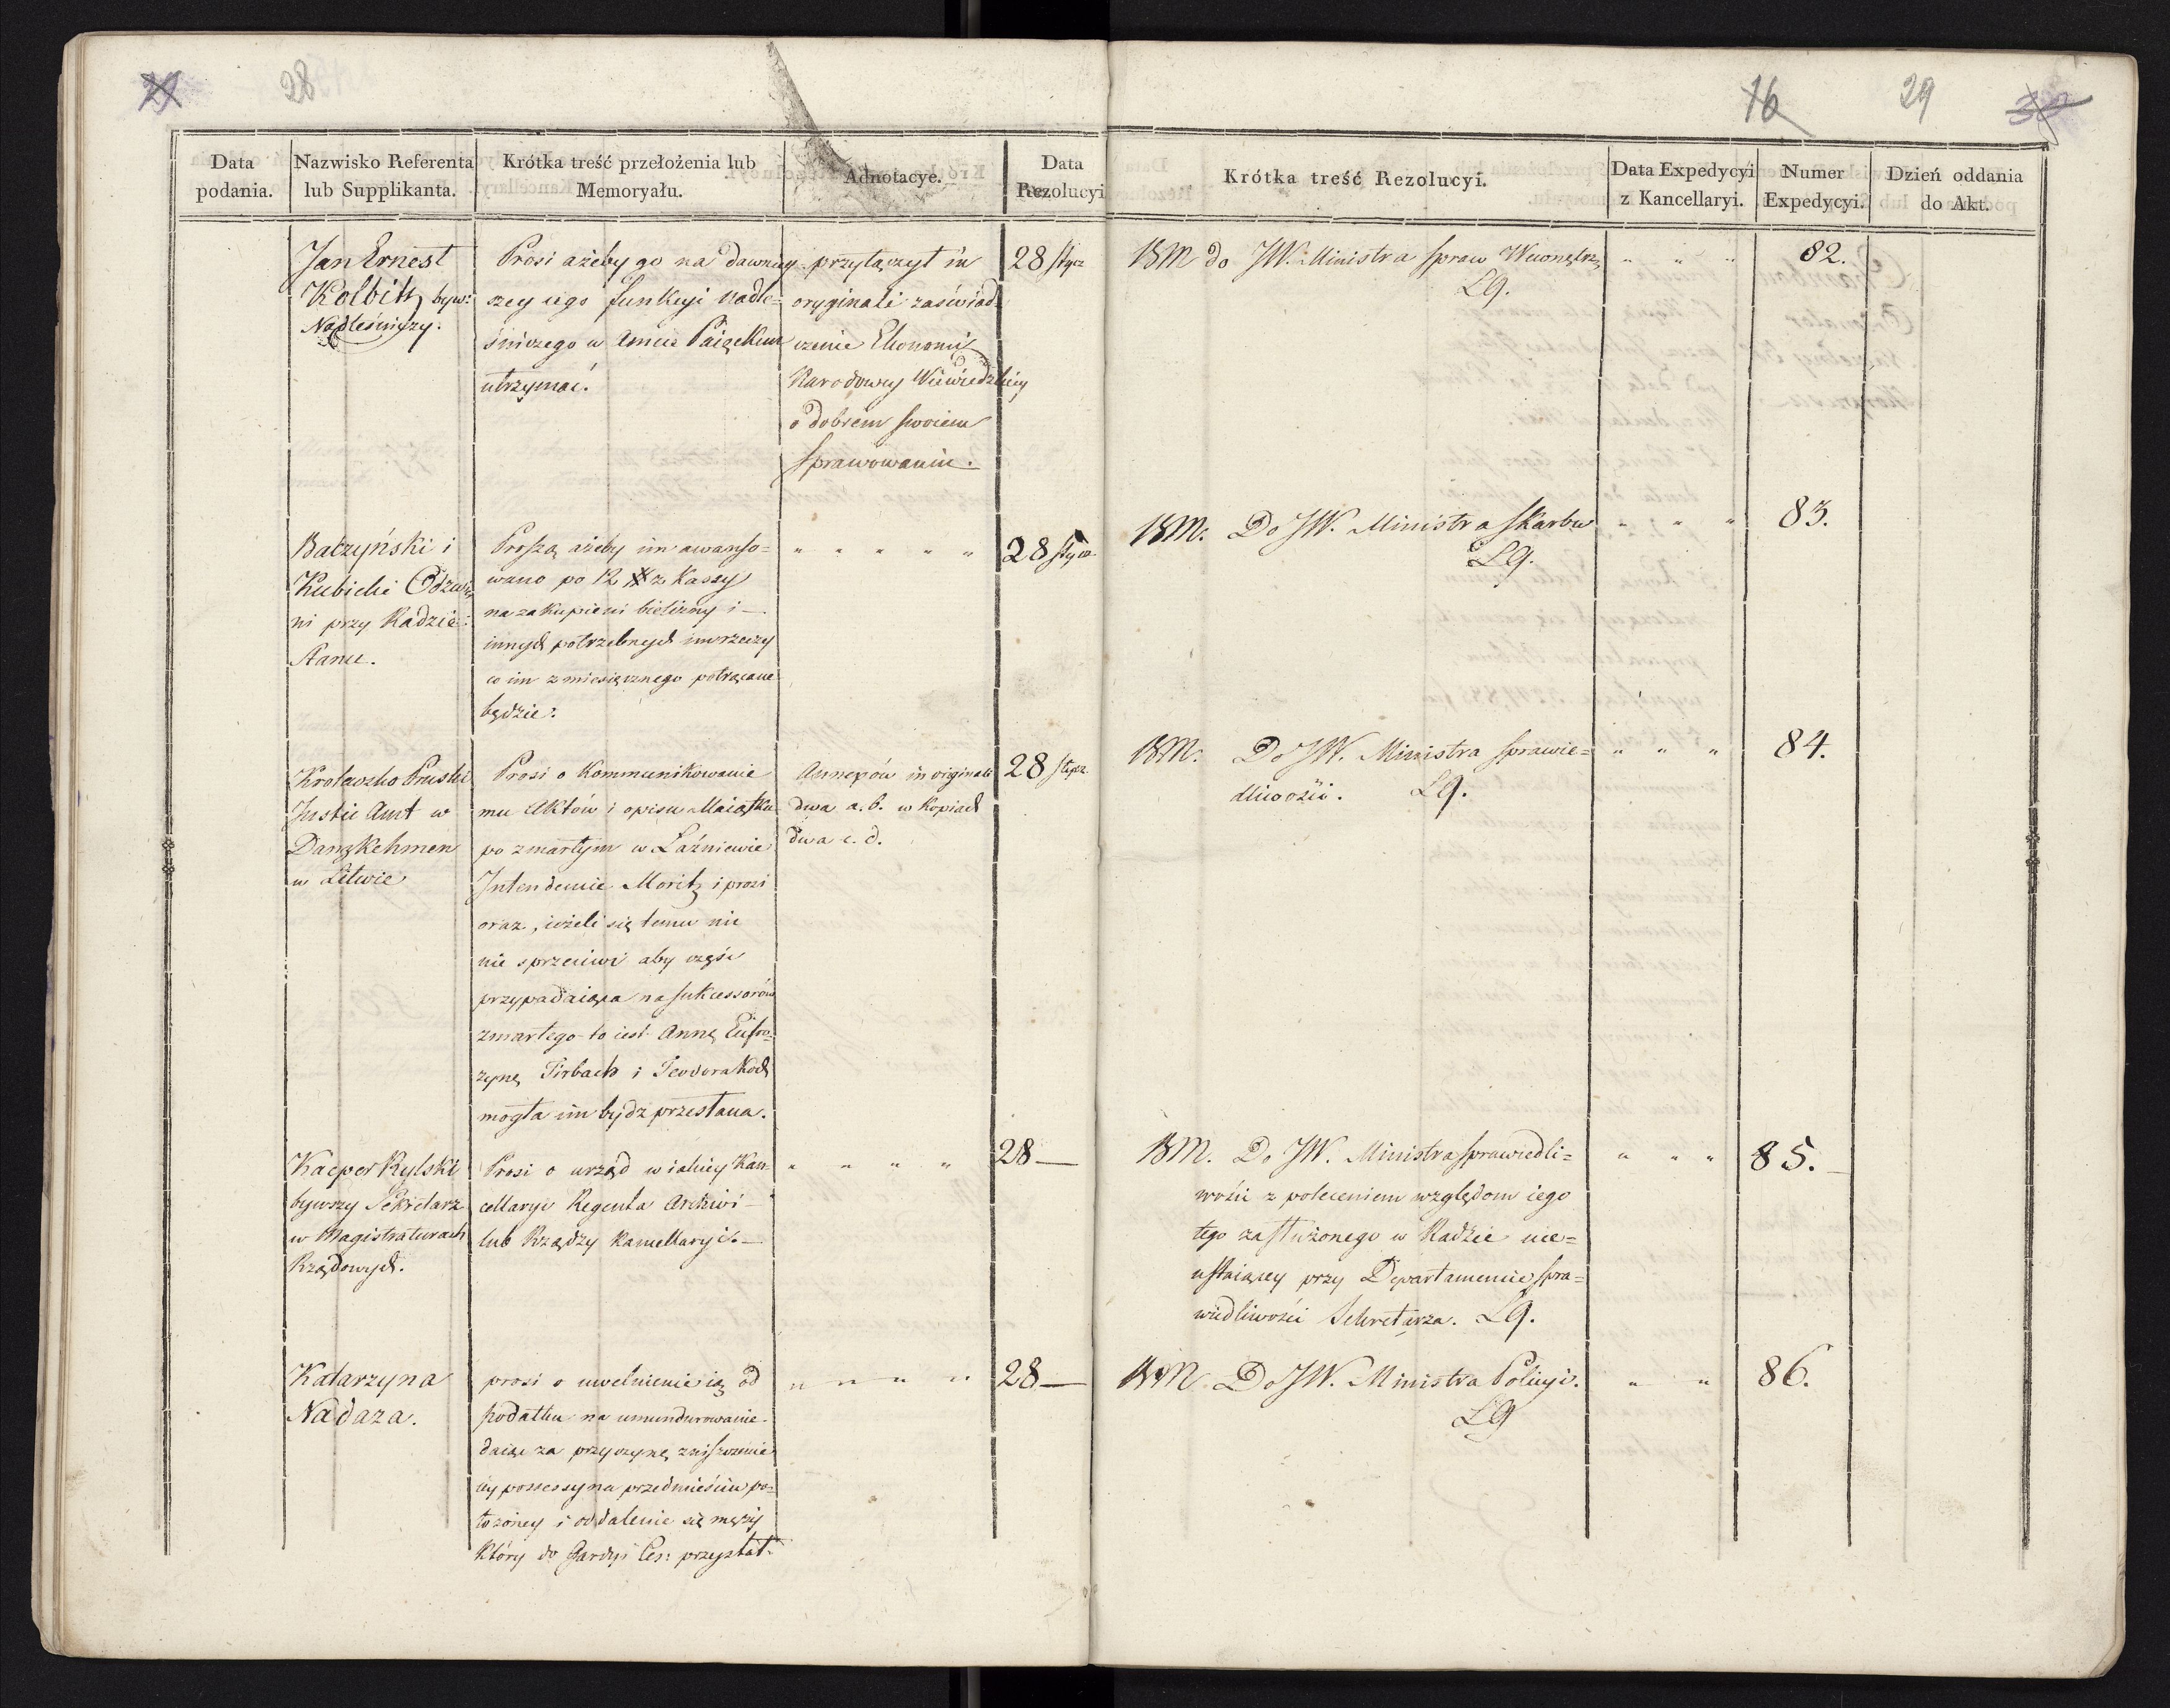 28
16
29
Data podania.
Nazwisko Referenta lub Supplikanta.
Krótka treść przełożenia lub Memoryału.
Adnotacye.
Data Rezolucyi
Krótka treść Rezolucyi.
Data Expedycyi z Kancellaryi.
Numer Expedycyi.
Dzień oddania do Akt.
Jan Ernest
Kolbitz byw:
Nadleśniczy.
Prosi ażeby go na dawniey-
szey iego funkcyi Nadle-
śniczego w Amcie
utrzymać.
przyłączył in
oryginali zaświad-
czenie Ekonomii
Narodowey
o dobrém swoiem
sprawowaniu.
28 stycz
BM do JW. Ministra spraw Wewnętrz,
LG.
" " "
82.
Batzyński i
Kubicki Odzwier
ni przy Radzie
Stanu.
Proszą ażeby im awanso=
wano po 12 # z Kassy
na zakupienie bielizny i
innych potrzebnych im rzeczy
co im z miesięcznego potrącane
będzie.
" " " " "
28 stycz.
BM. Do JW. Ministra Skarbu
LG.
" " "
83.
Krolewsko Pruski
Justic Amt w
Danzkehmen
w Litwie
Prosi o Kommunikowanie
mu Aktów i opisu Maiątku
po zmarłym w Łaźniewie
Intendencie Moritz i prosi
oraz, ieżeli się temu nic
nie sprzeciwi aby część
przypadaiąca na sukcessorów
zmarłego to iest Annę Eufro-
zynę Tirbach i Teodora Koch
mogła im bydz przesłana.
Annexów in originali
dwa a. b. w Kopiach
dwa c. d.
28 stycz.
BM. Do JW. Ministra sprawie=
dliwości. LG.
" " "
84.
Kacper Rylski
bywszy Sekretarz
w Magistraturach
Rządowych.
Prosi o urząd w iakiey Kan-
cellaryi Regenta Archiwi
lub Rządzy Kancellaryi.
" " " "
28 —
BM. Do JW. Ministra sprawiedli=
wości z poleceniem względom iego
tego zasłużonego w Radzie nie=
ustaiącey przy Departamencie spra=
wiedliwości Sekretarza. LG.
" " "
85.
Katarzyna
Nadaza.
prosi o uwolnienie ią od
podatku na umundurowanie
daiąc za przyczynę zniszczenie
iéy possessyi na przedmieściu po-
łożoney i oddalenie się męża
który do Gardyi Ces: przystał.
" " " "
28 —
BM. Do JW. Ministra Policyi.
LG
" "
86.